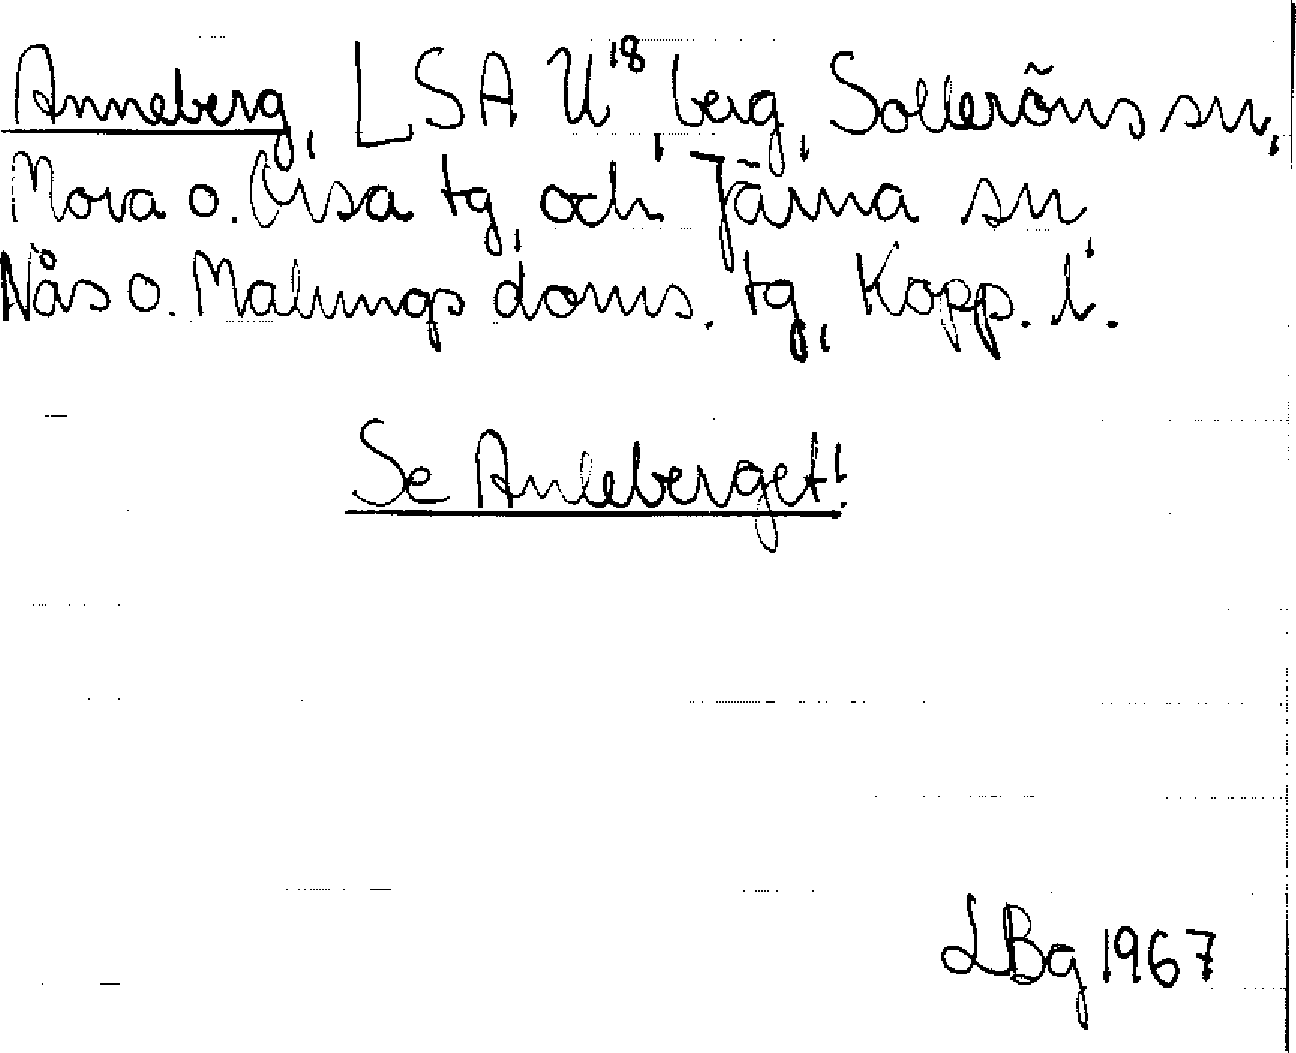 Anneberg, LSA U¹⁸, berg, Solleröns sn,
Mora o. Orsa tg, och Järna sn,
Nås o. Malungs doms. tg, Kopp. l.
Se Anleberget!
LBg 1967